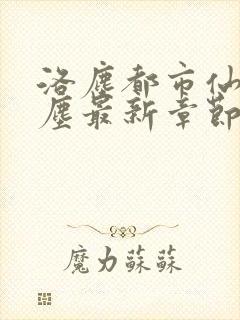 洛塵都市仙
塵最新章節
魔力蘇蘇